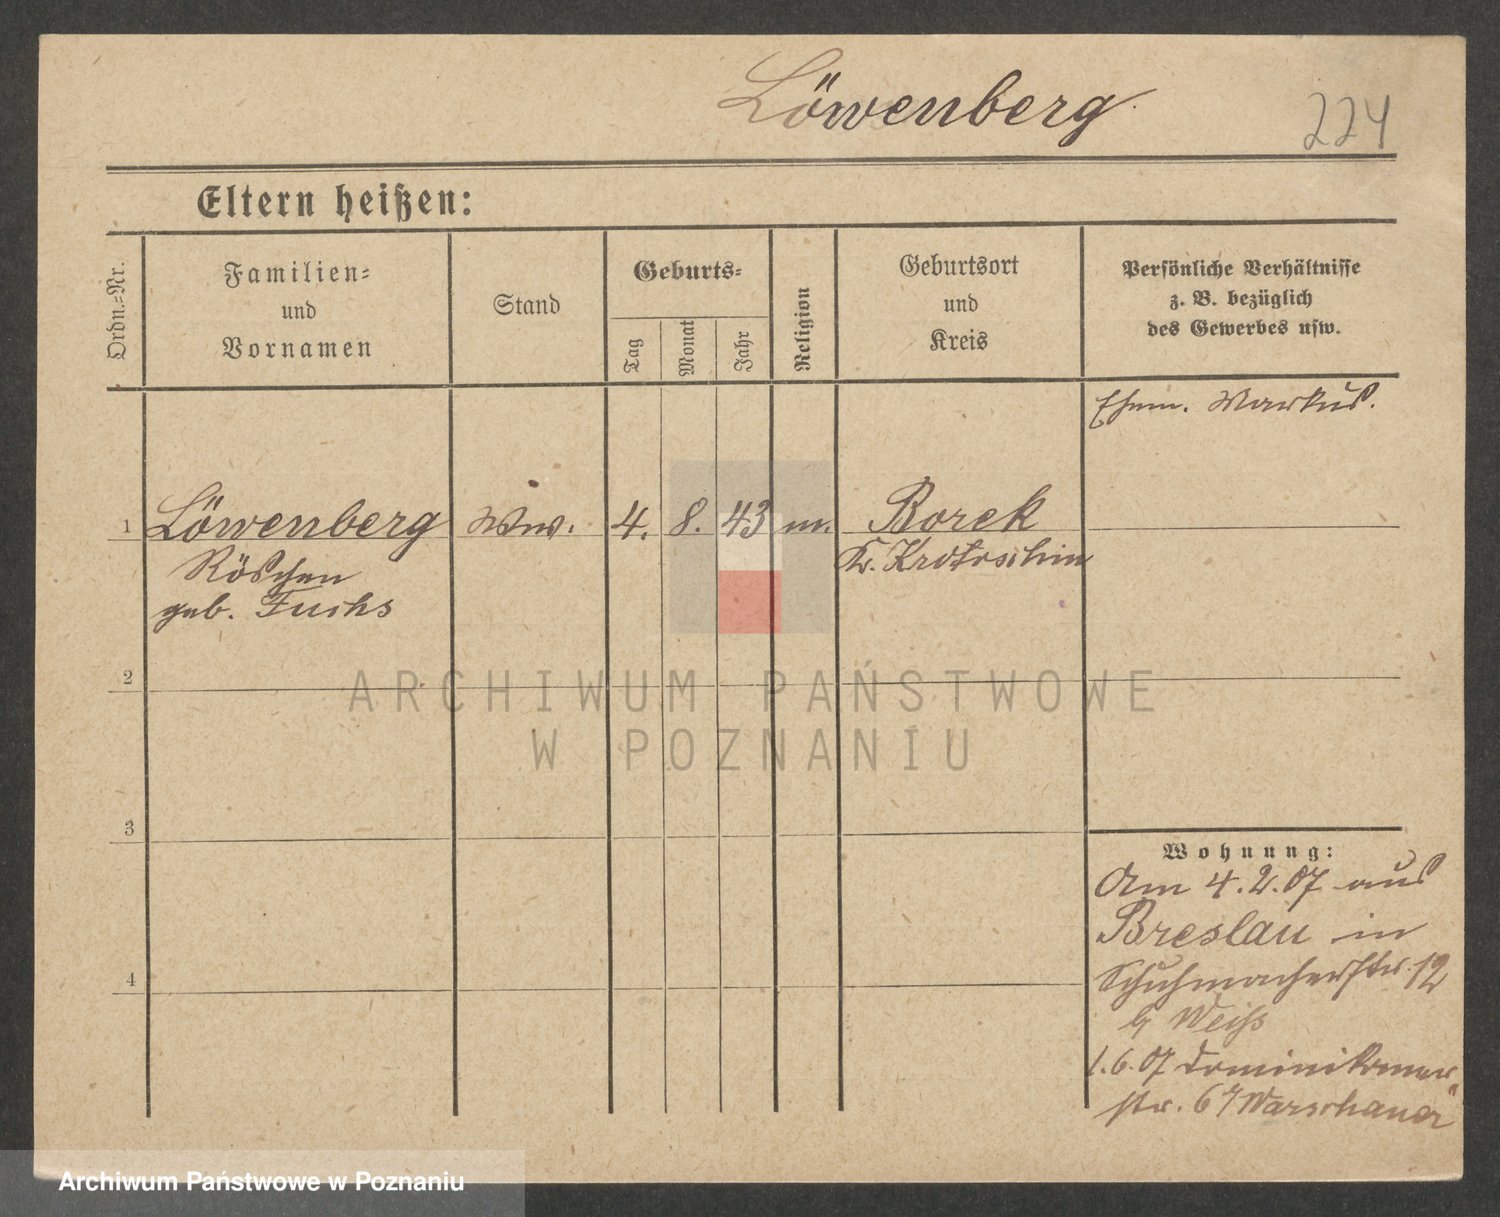 Löwenberg.
224
Eltern heißen:
Ordn.=Nr.
Familien=
und
Vornamen
Stand
Geburts=
Tag
Monat
Jahr
Religion
Geburtsort
und
Kreis
Persönliche Verhältnisse
z. B. bezüglich
des Gewerbes usw.
Ehem. Markus.
1 Löwenberg Ww. 4. 8. 43 m. Borek
Röschen Kr. Krotoschin
geb. Fuchs
2
3
4
Wohnung:
Am 4.2.07 aus
Breslau in
Schuhmacherstr. 12
b/ Weiss
1.6.07 Dominikaner
str. 6 b/ Warschauer
ARCHIWUM PAŃSTWOWE
W POZNANIU
Archiwum Państwowe w Poznaniu